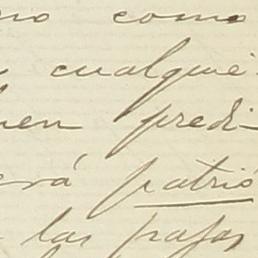 no como
cualquie
uen predi-
erá patrió
las pasas